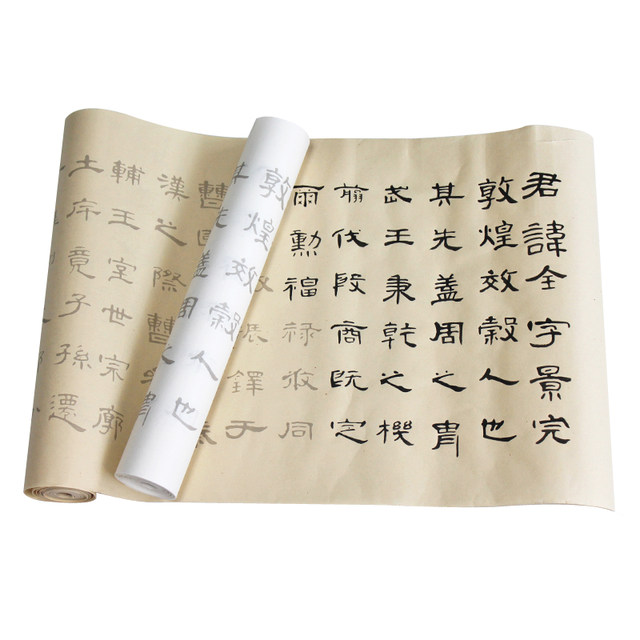 君諱全字景完
敦煌效穀人也
其先盖周之胄
武王秉乾之機
翦伐殷商既定
爾勳福祿攸同
振鐸于
敦煌效穀人也
盖周之胄
曹國
漢之際曹
輔王室世宗廓
土斥竟子孫遷